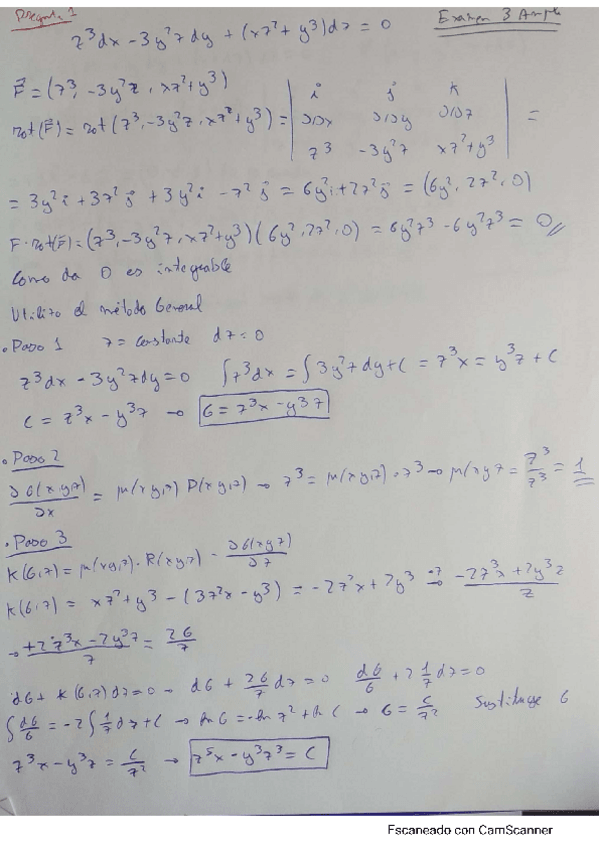 Pregunta 1
Examen 3 Ampl
z³dx - 3y²z dy + (xz² + y³)dz = 0
F⃗ = (z³, -3y²z, xz² + y³)
rot(F⃗) = rot(z³, -3y²z, xz² + y³) = | i j k | =
| ∂/∂x ∂/∂y ∂/∂z |
| z³ -3y²z xz² + y³ |
= 3y²i + 3z²j + 3y²i - z²j = 6y²i + 2z²j = (6y², 2z², 0)
F · rot(F⃗) = (z³, -3y²z, xz² + y³)(6y², 2z², 0) = 6y²z³ - 6y²z³ = 0 //
Como da 0 es integrable
Utilizo el método General
• Paso 1 z = constante dz = 0
z³dx - 3y²z dy = 0 ∫z³dx = ∫3y²z dy + C = z³x = y³z + C
C = z³x - y³z → G = z³x - y³z
• Paso 2
∂G(x,y,z)/∂x = μ(x,y,z) P(x,y,z) → z³ = μ(x,y,z) · z³ → μ(x,y,z = z³/z³ = 1
• Paso 3
K(G,z) = μ(x,y,z) · R(x,y,z) - ∂G(x,y,z)/∂z
K(G,z) = xz² + y³ - (3z²x - y³) = -2z²x + 2y³ → -2z³x + 2y³z / z
→ +2z³x - 2y³z / z = 2G/z
dG + K(G,z)dz = 0 → dG + 2G/z dz = 0 dG/G + 2 1/z dz = 0
∫dG/G = -2∫1/z dz + C → ln G = -ln z² + ln C → G = C/z² Sustituyo G
z³x - y³z = C/z² → z⁵x - y³z³ = C
Escaneado con CamScanner